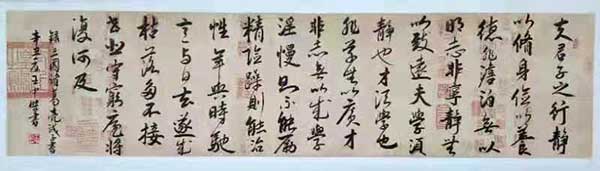 夫君子之行靜
以脩身儉以養
德非澹泊無以
明志非寧靜無
以致遠夫學須
靜也才須學也
非學無以廣才
非志無以成學
淫慢則不能勵
精險躁則能冶
性年與時馳
意與日去遂成
枯落多不接
世悲守窮廬將
復何及
錄三國諸葛亮誡子書
辛丑夏王書